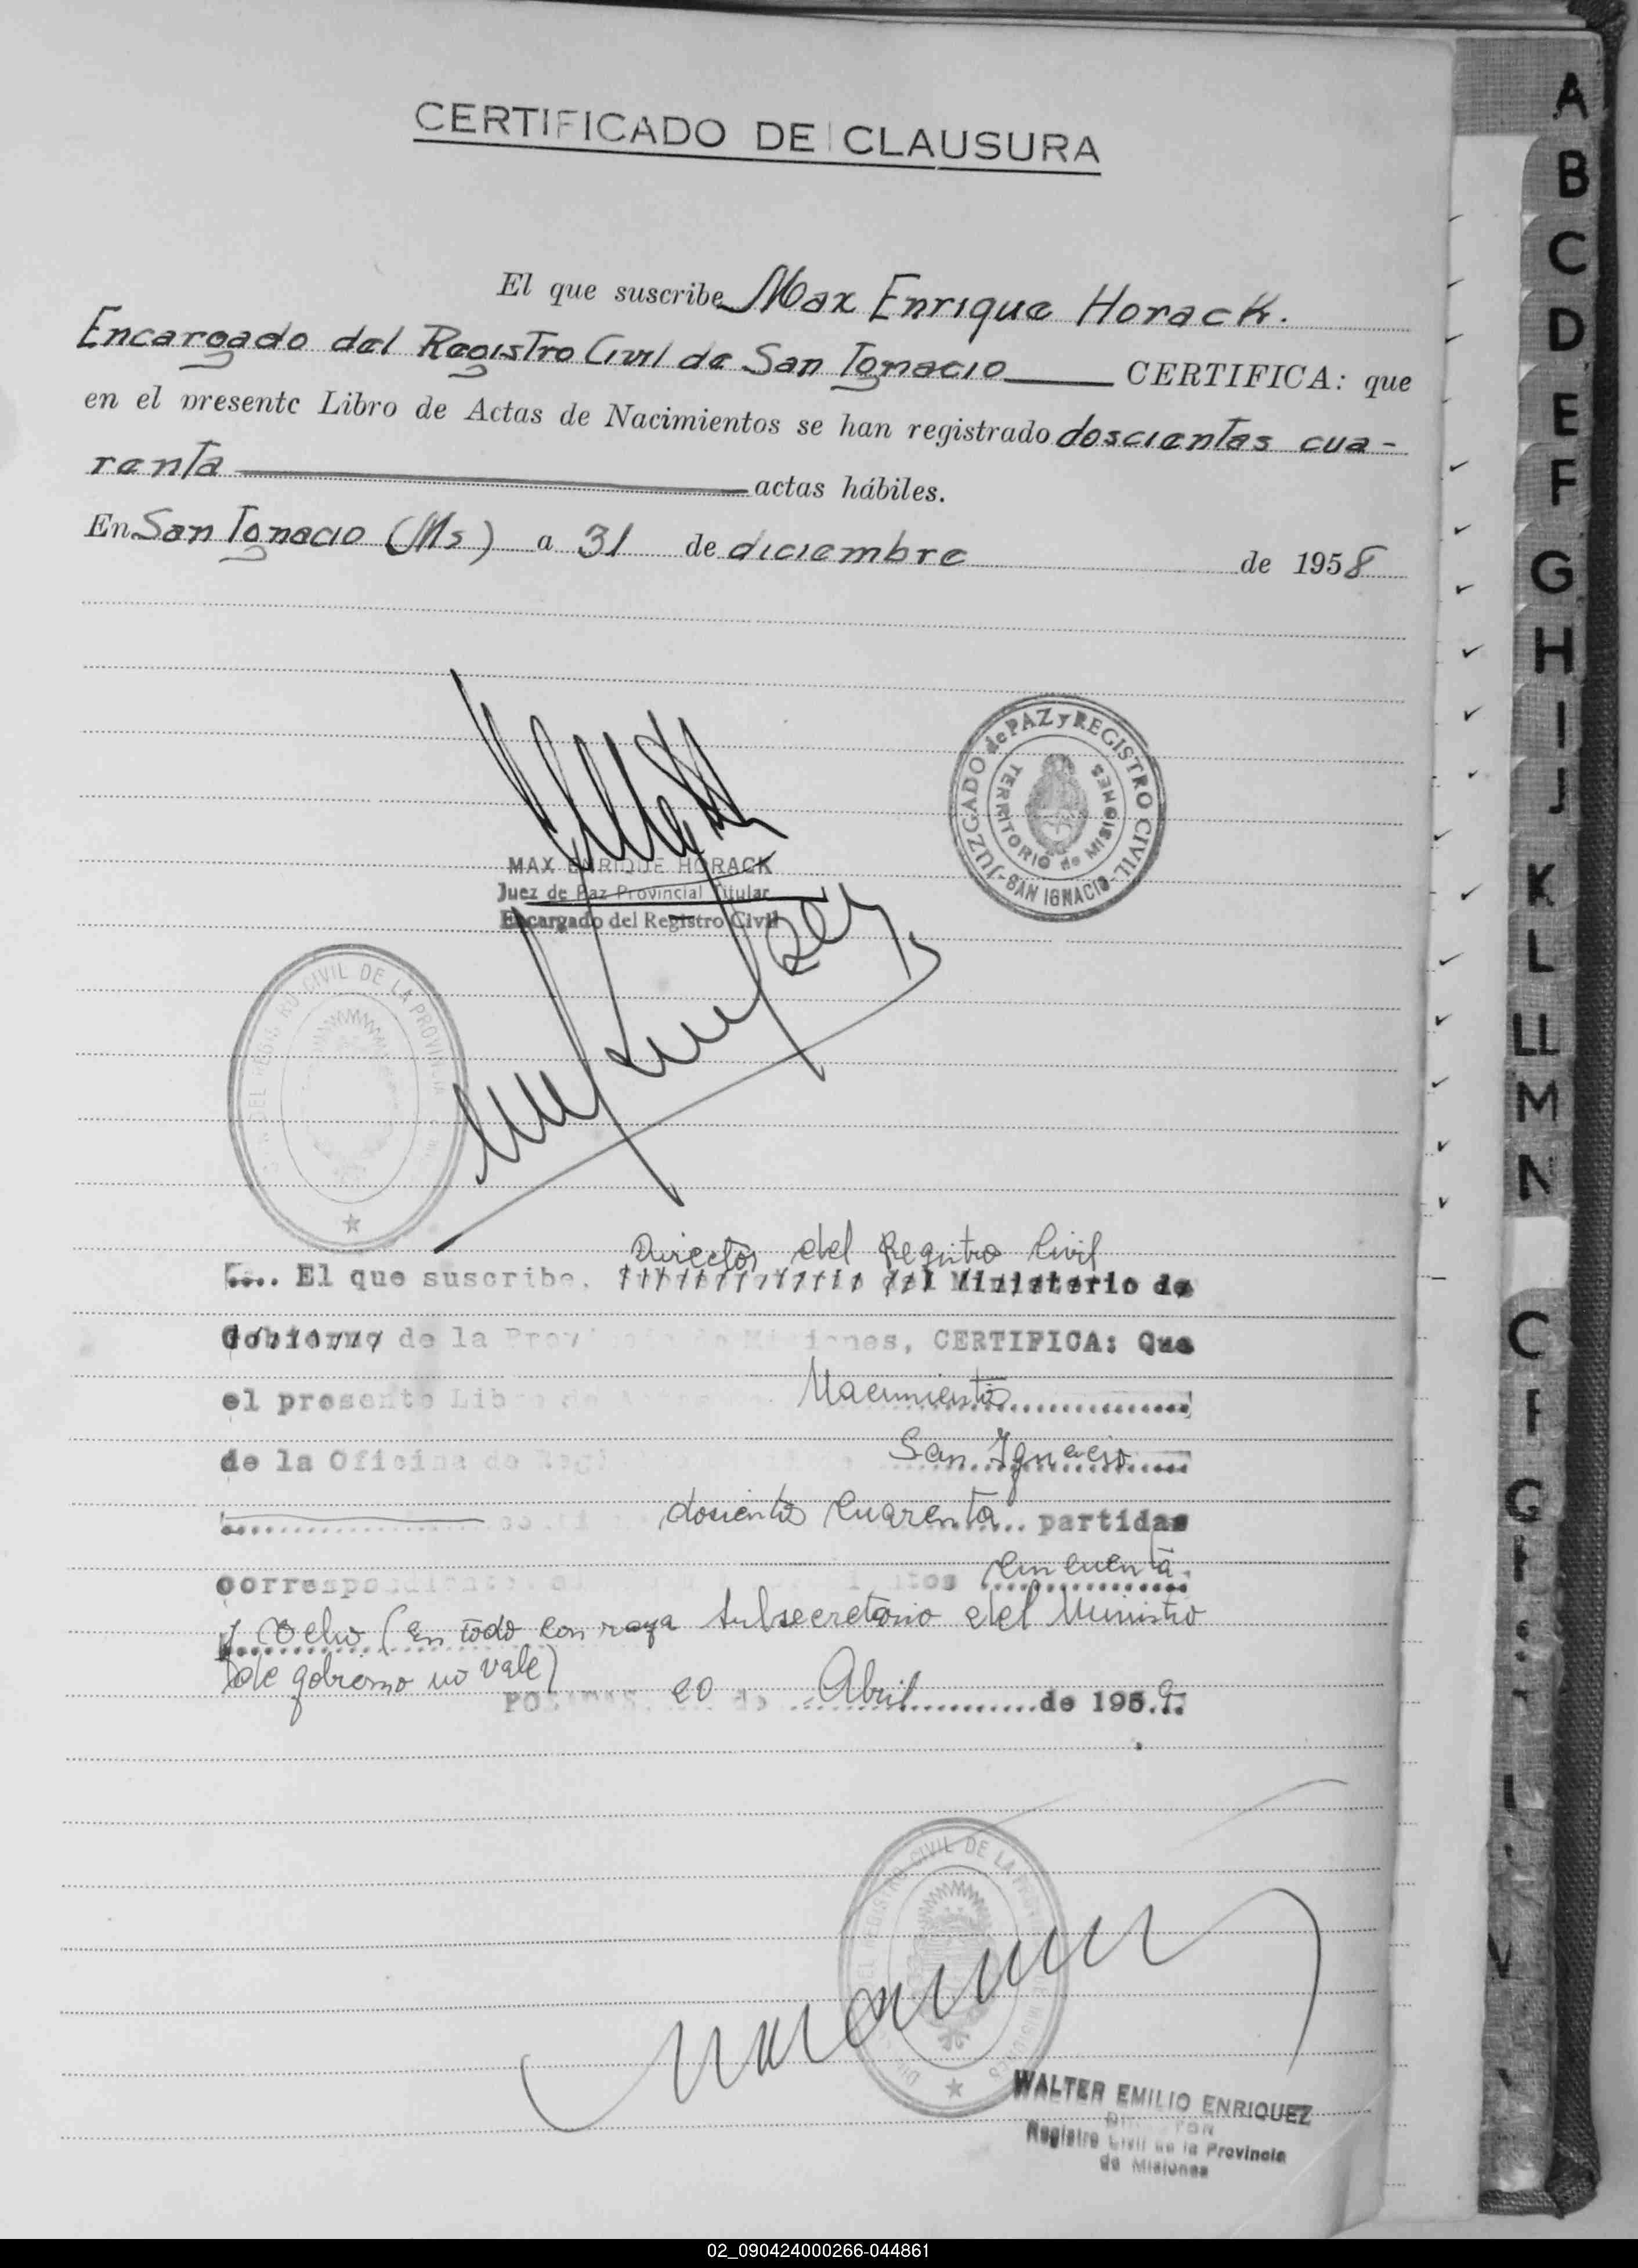 CERTIFICADO DE CLAUSURA
El que suscribe Max Enrique Horack.
Encargado del Registro Civil de San Ignacio CERTIFICA: que
en el presente Libro de Actas de Nacimientos se han registrado doscientas cua-
renta actas hábiles.
En San Ignacio (Ms) a 31 de diciembre de 1958
JUZGADO de PAZ y REGISTRO CIVIL
TERRITORIO de MISIONES
SAN IGNACIO
MAX ENRIQUE HORACK
Juez de Paz Provincial Titular
Encargado del Registro Civil
DEL REGISTRO CIVIL DE LA PROVINCIA
Director del Registro Civil
.... El que suscribe, del Ministerio de
Gobierno de la Provincia de Misiones, CERTIFICA: Que
el presente Libro de Nacimientos
de la Oficina de San Ignacio
dosciento cuarenta partidas
correspondientes cincuenta
y ocho (en todo con raya Subsecretario del Ministro
de gobierno no vale)
POSADAS, 20 de Abril de 1959.
DEL REGISTRO CIVIL DE LA PROVINCIA DE MISIONES
WALTER EMILIO ENRIQUEZ
DIRECTOR
Registro Civil de la Provincia
de Misiones
A
B
C
D
E
F
G
H
I
J
K
L
LL
M
N
02_090424000266-044861